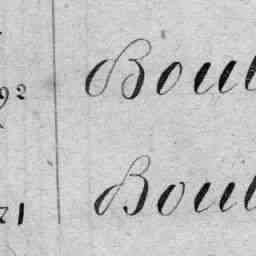 92 Boul
71 Boul